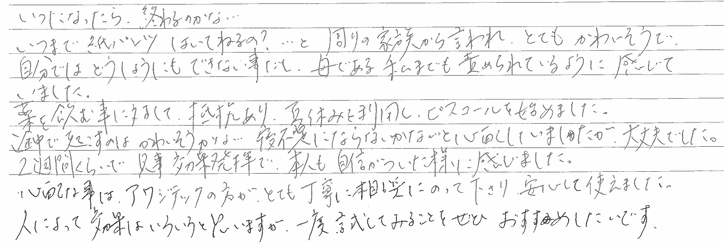 いつになったら、終わるのかな…
いつまで紙パンツはいてねるの？…と周りの家族から言われ、とてもかわいそうで、
自分ではどうしようにもできない事だし、母である私までも責められているように感じて
いました。
薬を飲む事に対して、抵抗あり、夏休みを利用し、ピスコールを始めました。
途中で起こすのはかわいそうかな… 寝不足にならないかな、と心配していましたが、大丈夫でした。
2週間くらいで見事効果発揮で、本人も自信がついた様に感じました。
心配な事は、アワジテックの方が、とても丁寧に相談にのって下さり安心して使えました。
人によって効果はいろいろと思いますが、一度試してみることをぜひおすすめしたいです。